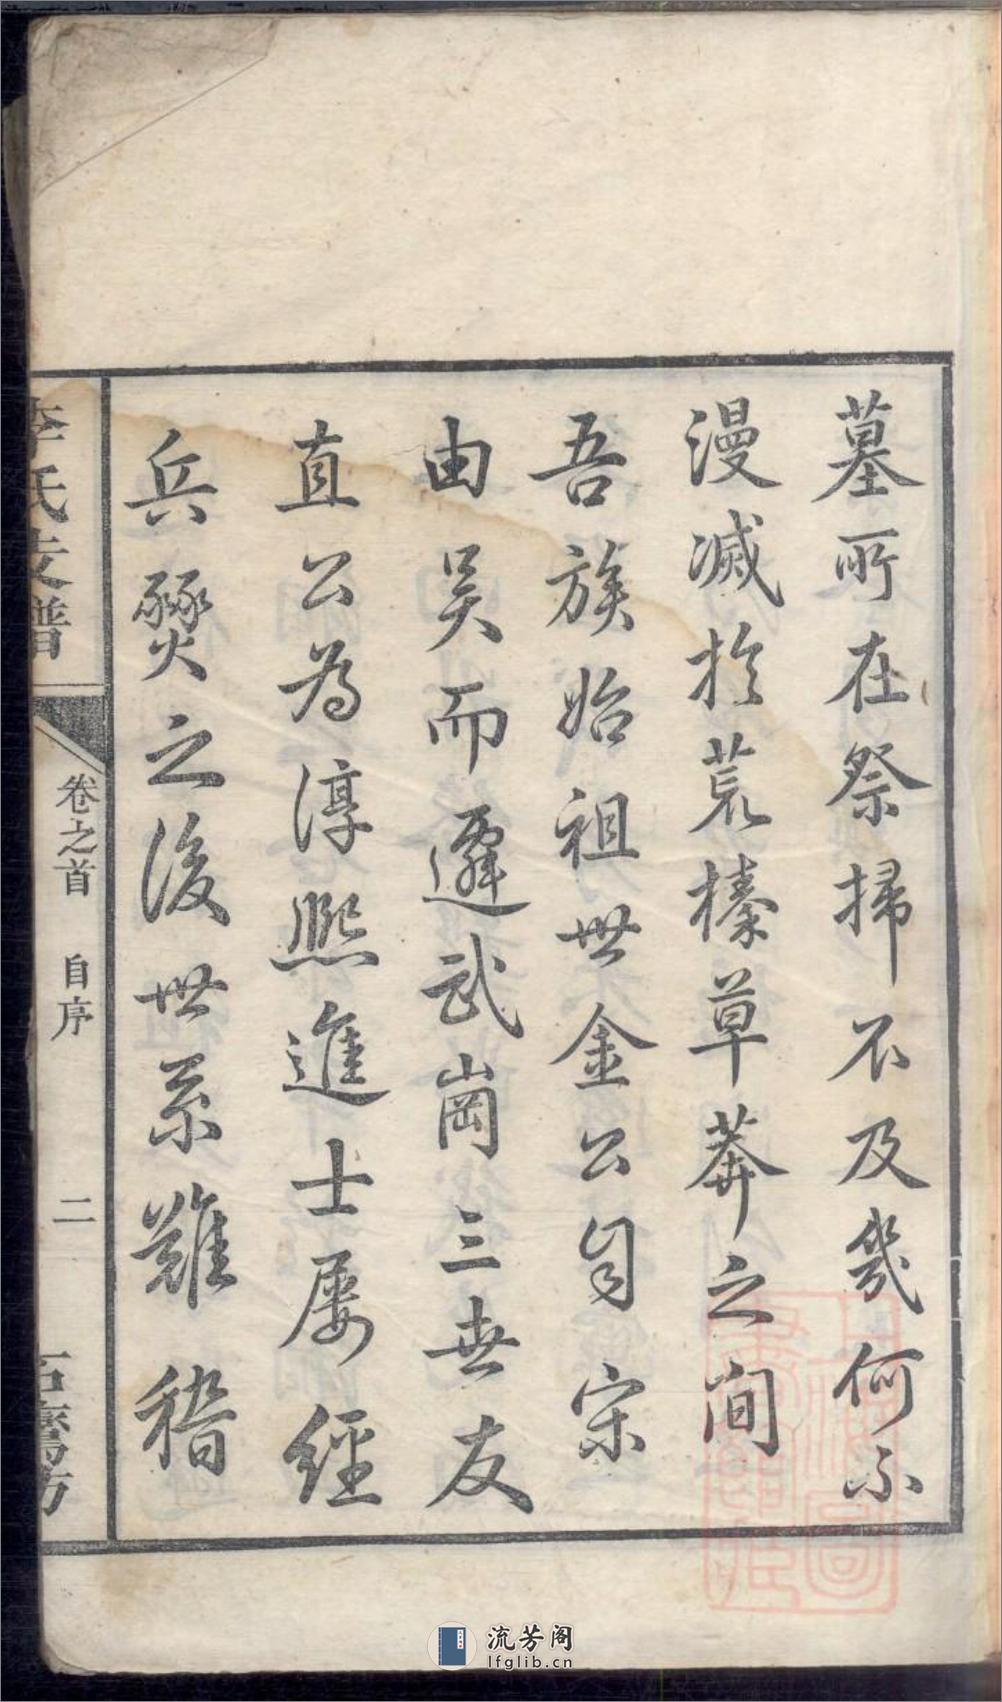 墓所在祭掃不及幾何不
漫滅於荒榛草莽之間
吾族始祖世金公自宋
由吴而遷武崗三世友
直公為淳熙進士屡經
兵燹之後世系難稽
李氏支譜
卷之首
自序
二
流芳阁
lfglib.cn